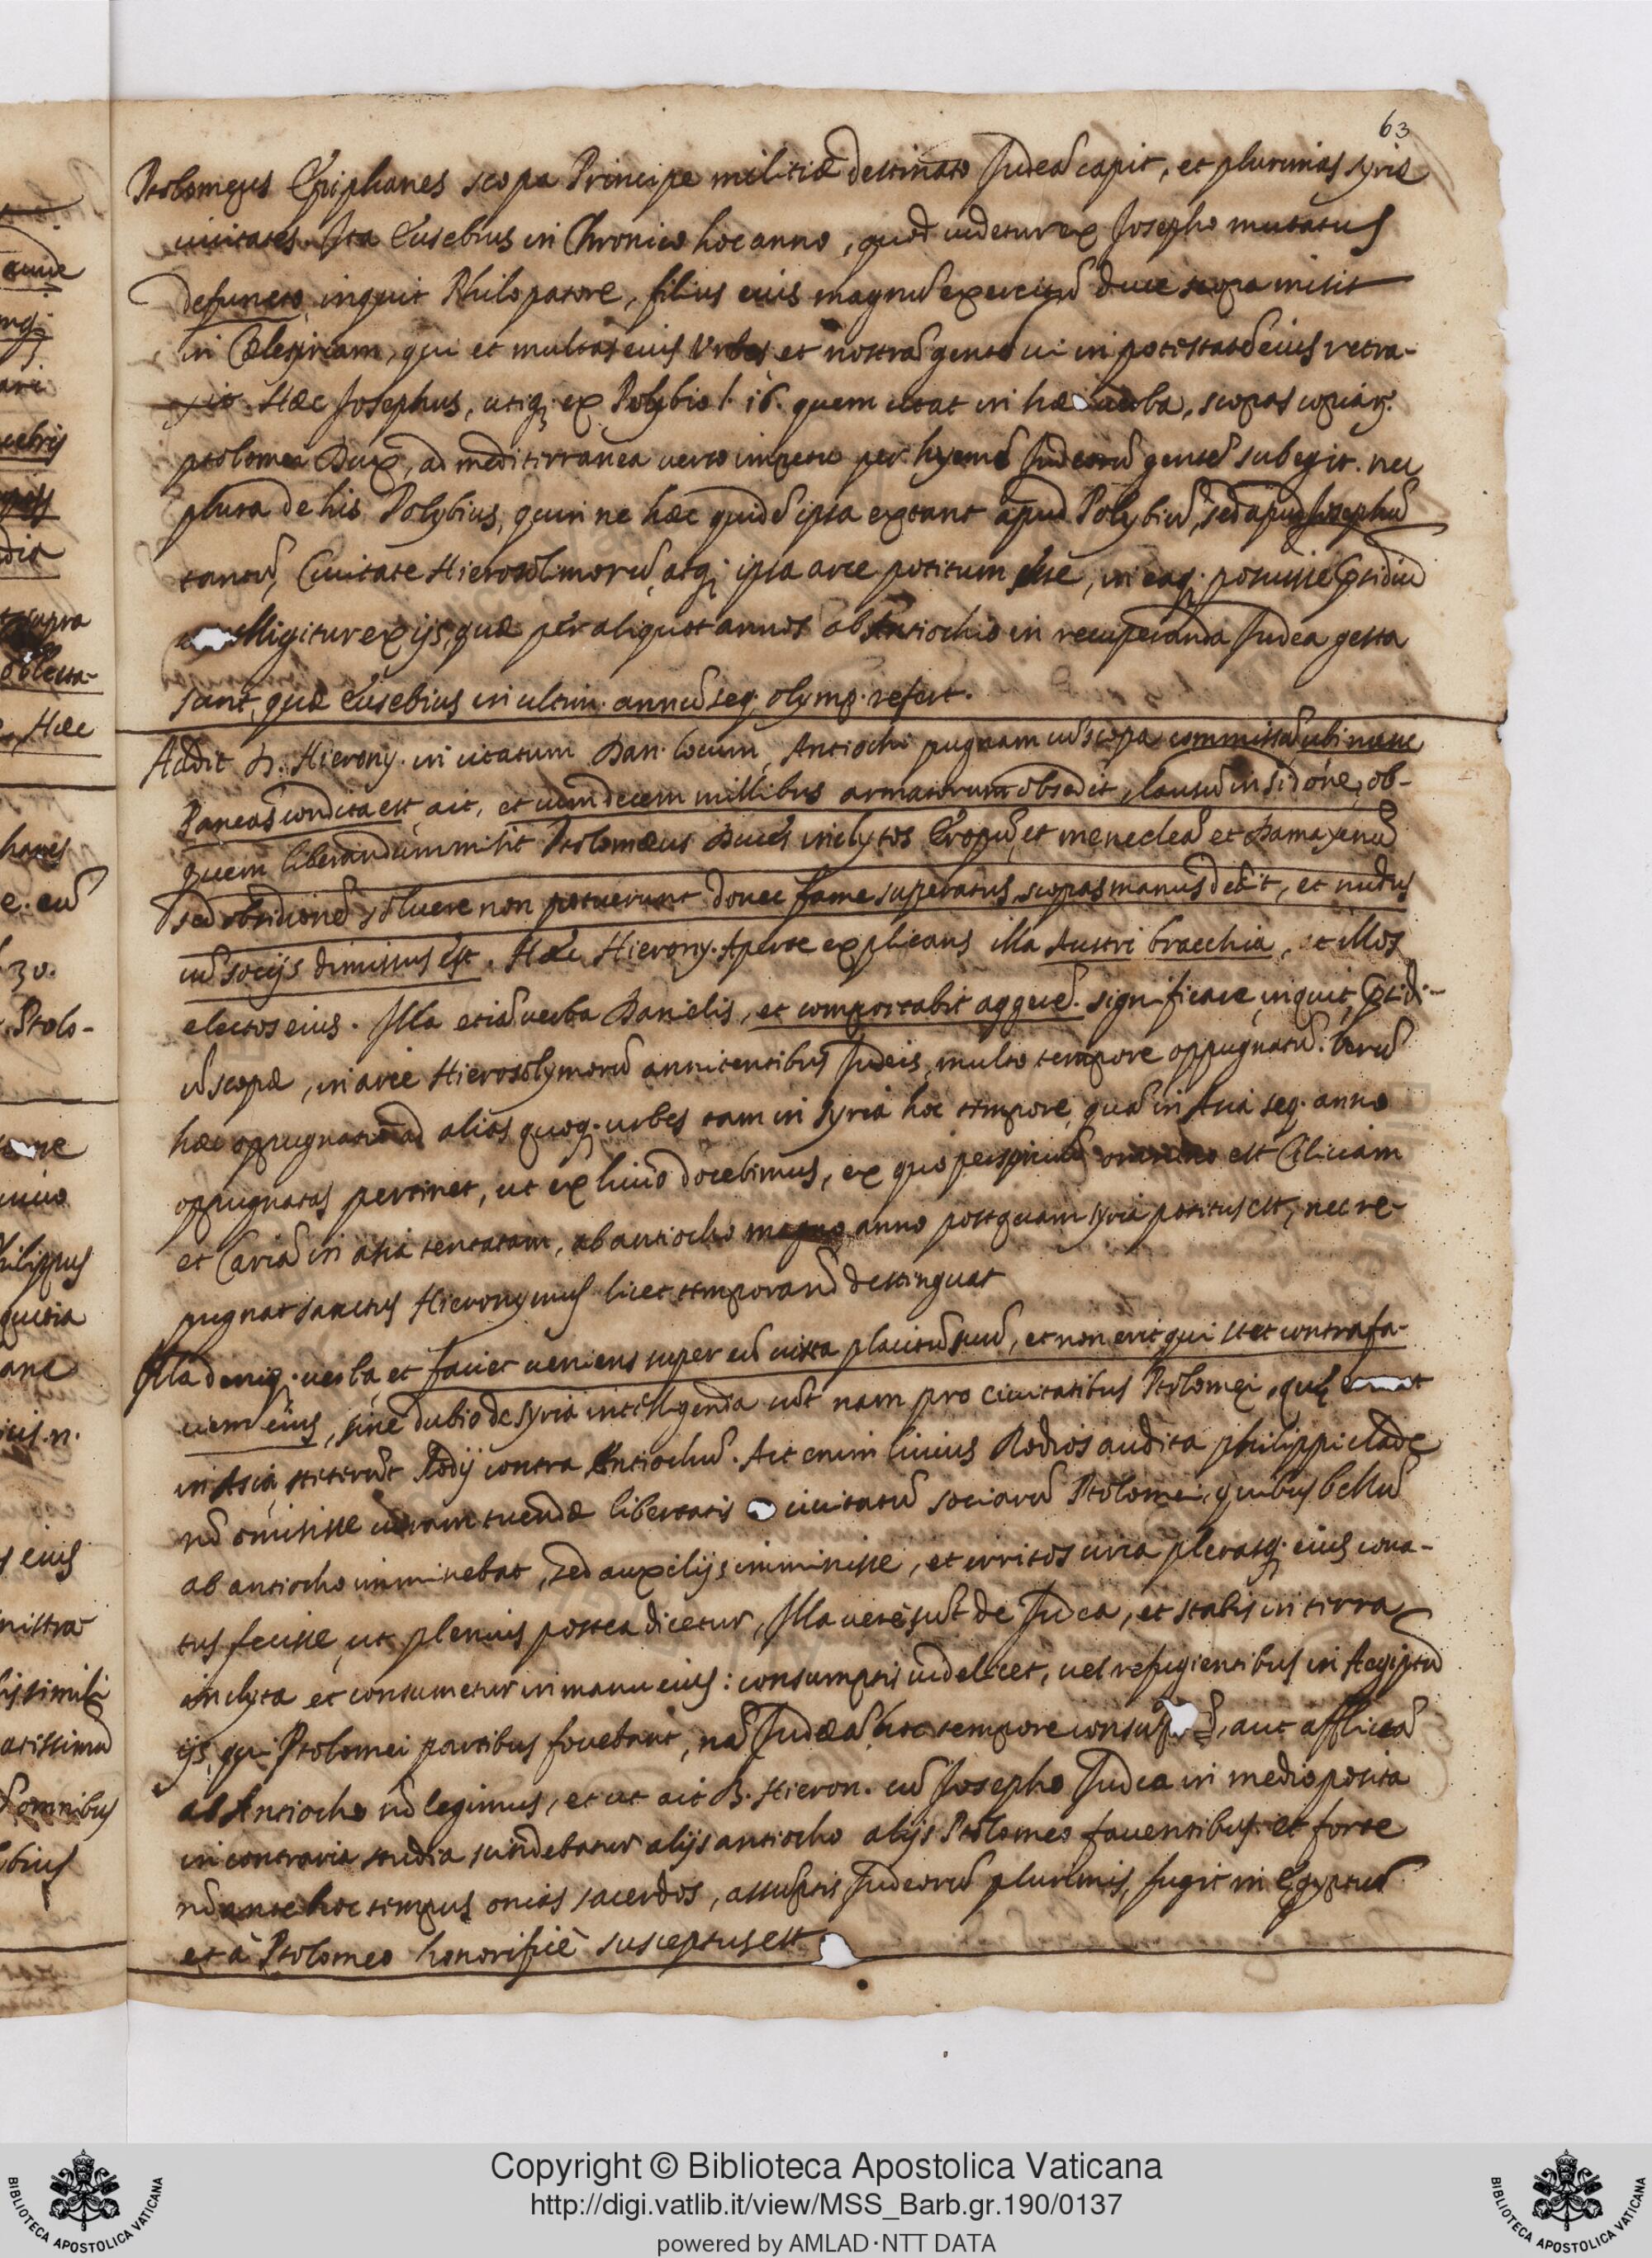 63
Ptolomeus Epiphanes scopa Principe militiæ destinato Judeã capit, et plurimas syriæ
civitates. Ita Eusebius in Chronico hoc anno, quod videtur ex Josepho mutatus
defuncto, inquit Philopatore, filius eius magnũ exercitũ duce scopa misit
in Cælesyriam, qui et multas eius Urbes et nostrã gentẽ vi in potestatẽ eius retra-
xit. Hæc Josephus, utiq; ex Polybio l. 16. quem citat in hæc verba, scopas copiar.
ptolomei Dux, ad mediterranea verso impetu per hyemẽ Judeorũ gentẽ subegit. nec
plura de his Polybius, quin ne hæc quidẽ ipsa extant apud Polybiũ, sed apud Josephũ
tantũ, Civitate Hierosolimorũ, atq; ipsa arce potitum esse, in eaq; posuisse Præsidiũ
colligitur ex ijs, quæ per aliquot annos ab Antiocho in recuperanda Judea gesta
sunt, quæ Eusebius in ultim. annũ seq. olymp. refert.
Addit D. Hierony. in citatum Dan. locum, Antiochi pugnam cũ scopa commissã ubi nunc
Paneas condita est, ait, et cum decem millibus armatorum obsedit, clausũ in sidone, ob-
quem liberandum misit Ptolomæus Duces inclytos Eropũ, et menecleã et Damaxenũ
sed obsidionẽ soluere non potuerunt donec fame superatus scopas manus dedit, et nudus
cũ socijs dimissus est. Hæc Hierony. Aperte explicans illa Austri bracchia, et illos
electos eius. Illa etiã verba Danielis, et comportabit aggerẽ. significare, inquit, Præsidi-
ũ scopæ, in arce Hierosolymorũ annitentibus Judeis, multo tempore oppugnatũ. Verũ
hæc oppugnatio ad alias quoq. urbes tam in Syria hoc tempore, quã in Asia seq. anno
oppugnatas pertinet, ut ex liuio docebimus, ex quo perspicuũ omnino est Ciliciam
et Cariã in asia tentatam, ab antiocho magno anno postquam syria potitus est, nec re-
pugnat sanctus Hieronymus licet tempora nõ destinguat
Illa deniq. verba, et faciet veniens super eũ iuxta placitũ suũ, et non erit qui stet contra fa-
ciem eius, sine dubio de syria intelligenda sũt nam pro civitatibus Ptolomei, quę erant
in Asia, stiterũt Rodij contra Antiochũ. Ait enim liuius Rodios audita philippi clade
nõ omisisse curam tuendæ libertatis civitatũ sociarũ Ptolomei, quibus bellũ
ab antiocho imminebat, sed auxilijs imminisse, et irritos circa plerasq. eius cona-
tus fecisse, ut plenius postea dicetur, Illa vero sũt de Judea, et stabit in terra
inclyta et consumetur in manu eius: consumptis videlicet, vel refugientibus in Aegiptũ
ijs, qui Ptolomei partibus fouebant, nã Judæã hoc tempore consũptã, aut afflictã
ab Antiocho nõ legimus, et ut ait B. Hieron. cũ Josepho Judea in medio posita
in contraria studia scindebatur alijs antiocho alijs Ptolomeo fauentibus. et forte
nõ ante hoc tempus onias sacerdos, assũptis Judeorũ plurimis, fugit in Egyptũ
et à Ptolomeo honorificè susceptus est
Copyright © Biblioteca Apostolica Vaticana
http://digi.vatlib.it/view/MSS_Barb.gr.190/0137
powered by AMLAD·NTT DATA
BIBLIOTECA APOSTOLICA VATICANA
BIBLIOTECA APOSTOLICA VATICANA